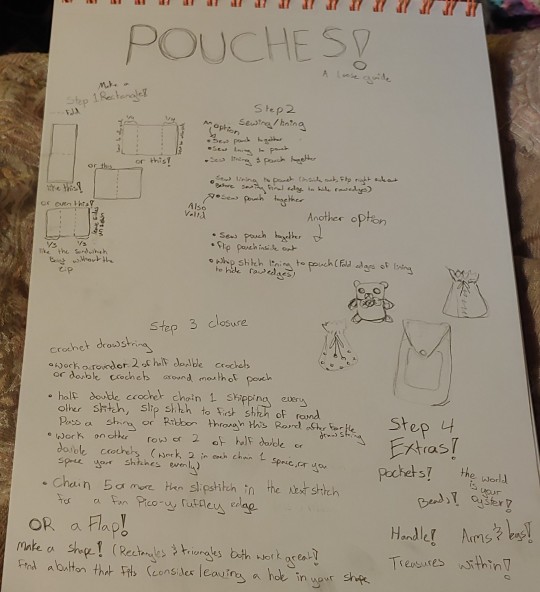 POUCHES!
A loose guide
Make a
Step 1 Rectangle!
Fold
like this!
1/3 1/3
or this!
or this
or even this!
1/3 1/3
like the sandwich
bags without the
zip
Step 2
Sewing/lining
An option
• Sew pouch together
• Sew lining to pouch
• Sew lining & pouch together
• Sew lining to pouch (inside out, flip right side out
before sewing final edge to hide raw edges)
• Sew pouch together
Also
Valid
Another option
• Sew pouch together
• Flip pouch inside out
• Whip stitch lining to pouch (Fold edges of lining
to hide raw edges)
Step 3 closure
crochet drawstring
• Work a round or 2 of half double crochets
or double crochets around mouth of pouch
• half double crochet chain 1 skipping every
other stitch, slip stitch to first stitch of round
Pass a string or Ribbon through this Round after for the
drawstring
• Work another row or 2 of half double or
double crochets (work 2 in each chain 1 space, or you
space your stitches evenly)
• Chain 5 or more then slipstitch in the next stitch
for a fun Pico-y ruffley edge
OR a Flap!
Make a shape! (Rectangles & triangles both work great!)
Find a button that fits (consider leaving a hole in your shape
Step 4
Extras!
Pockets!
the world
is your
oyster!
Beads!
Handle!
Arms & legs!
Treasures within!